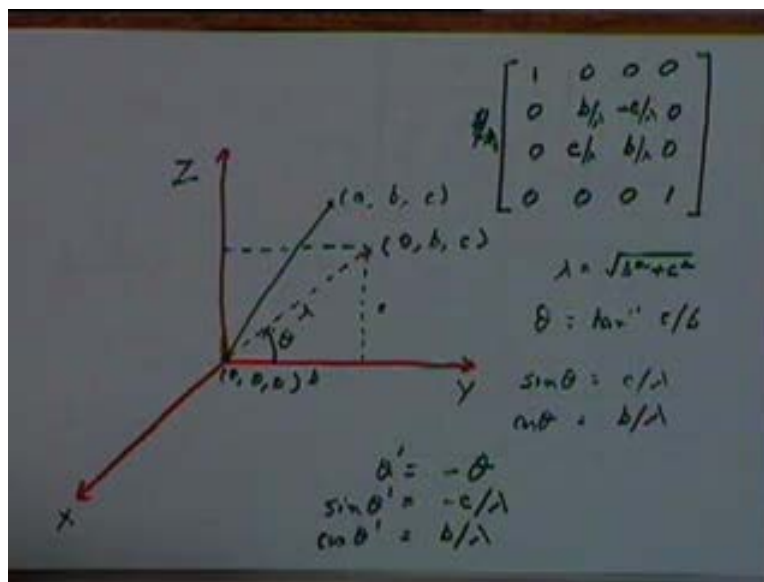 1 0 0 0
0 b/λ -c/λ 0
0 c/λ b/λ 0
0 0 0 1
Z
(a, b, c)
(0, b, c)
λ
θ
c
(0, 0, 0) b
Y
X
λ = √b²+c²
θ = tan⁻¹ c/b
sinθ = c/λ
cosθ = b/λ
θ' = -θ
sinθ' = -c/λ
cosθ' = b/λ